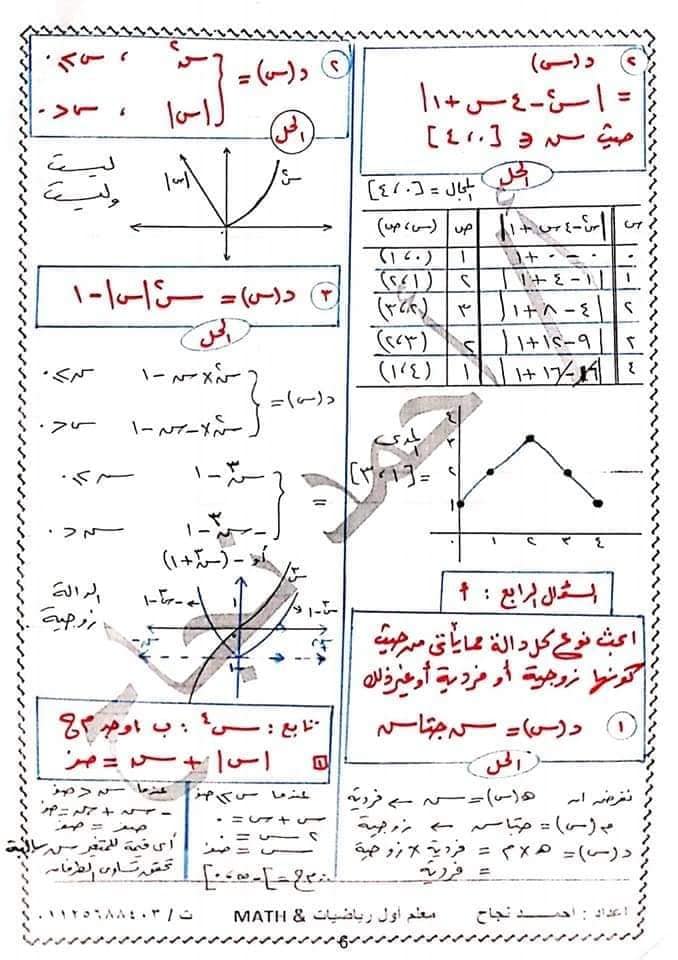 ٢ د(س)
= |س² - ٤س + ١|
حيث س ∈ [٠،٤]
الحل
المجال = [٠،٤]
س |س² - ٤س + ١| ص (س،ص)
٠ |٠ - ٠ + ١| ١ (٠،١)
١ |١ - ٤ + ١| ٢ (١،٢)
٢ |٤ - ٨ + ١| ٣ (٢،٣)
٢ |٩ - ١٢ + ١| ٢ (٣،٢)
٤ |١٦ - ١٦ + ١| ١ (٤،١)
المدى
= [١،٣]
٤
٣
٢
١
٠ ١ ٢ ٣ ٤
السؤال الرابع : أ
ابحث نوع كل دالة مما يأتى من حيث
كونها زوجية أو فردية أو غير ذلك
١ د(س) = س جتاس
الحل
نفرض أن ه(س) = س ← فردية
م(س) = جتاس ← زوجية
د(س) = ه × م = فردية × زوجية
= فردية
٢ د(س) = { س² ، س ≥ ٠
|س| ، س < ٠
الحل
ليست
وليست
|س| س²
٠
٣ د(س) = س²|س| - ١
الحل
د(س) = { س² × س - ١ س ≥ ٠
س² × -س - ١ س < ٠
= { س³ - ١ س ≥ ٠
-س³ - ١ س < ٠
أو -(س³ + ١)
الدالة
زوجية
س³
-س³ - ١
س³ - ١
١
-١
تابع : س٤ : ب أوجد م.ح
١ |س| + س = صفر
عندما س ≥ صفر
س + س = ٠
٢س = ٠
س = صفر
عندما س < صفر
-س + س = صفر
صفر = صفر
أى قيمة للمتغير س سالبة
تحقق تساوى الطرفان
∴ م.ح = ]-∞،٠]
اعداد : احمد نجاح معلم أول رياضيات & MATH ت / ٠١١٢٥٦٨٨٤٠٣
6